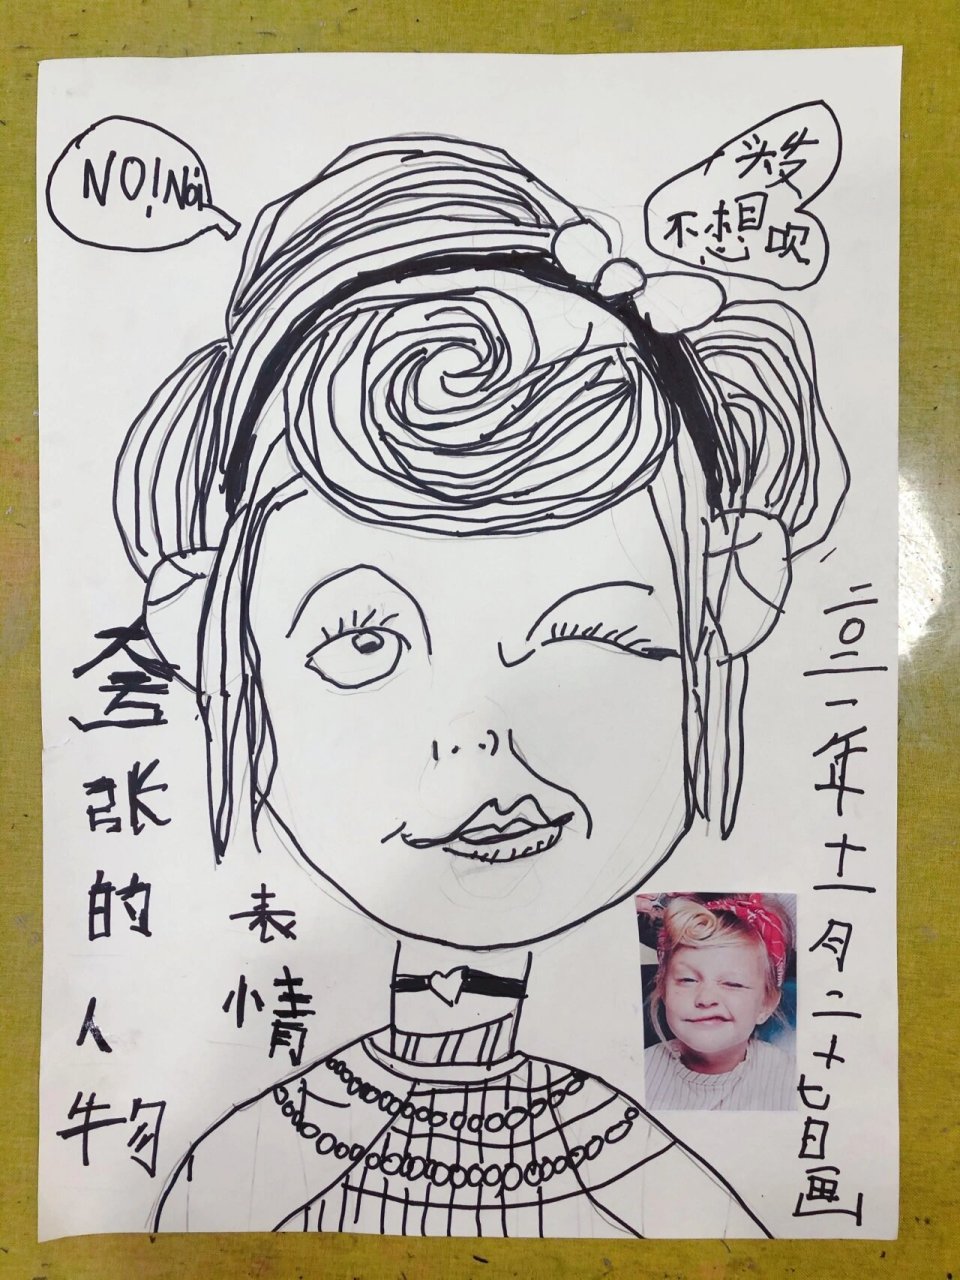 NO!No!
头发
不想吹
夸张的人物
表情
二〇二一年十一月二十七日画